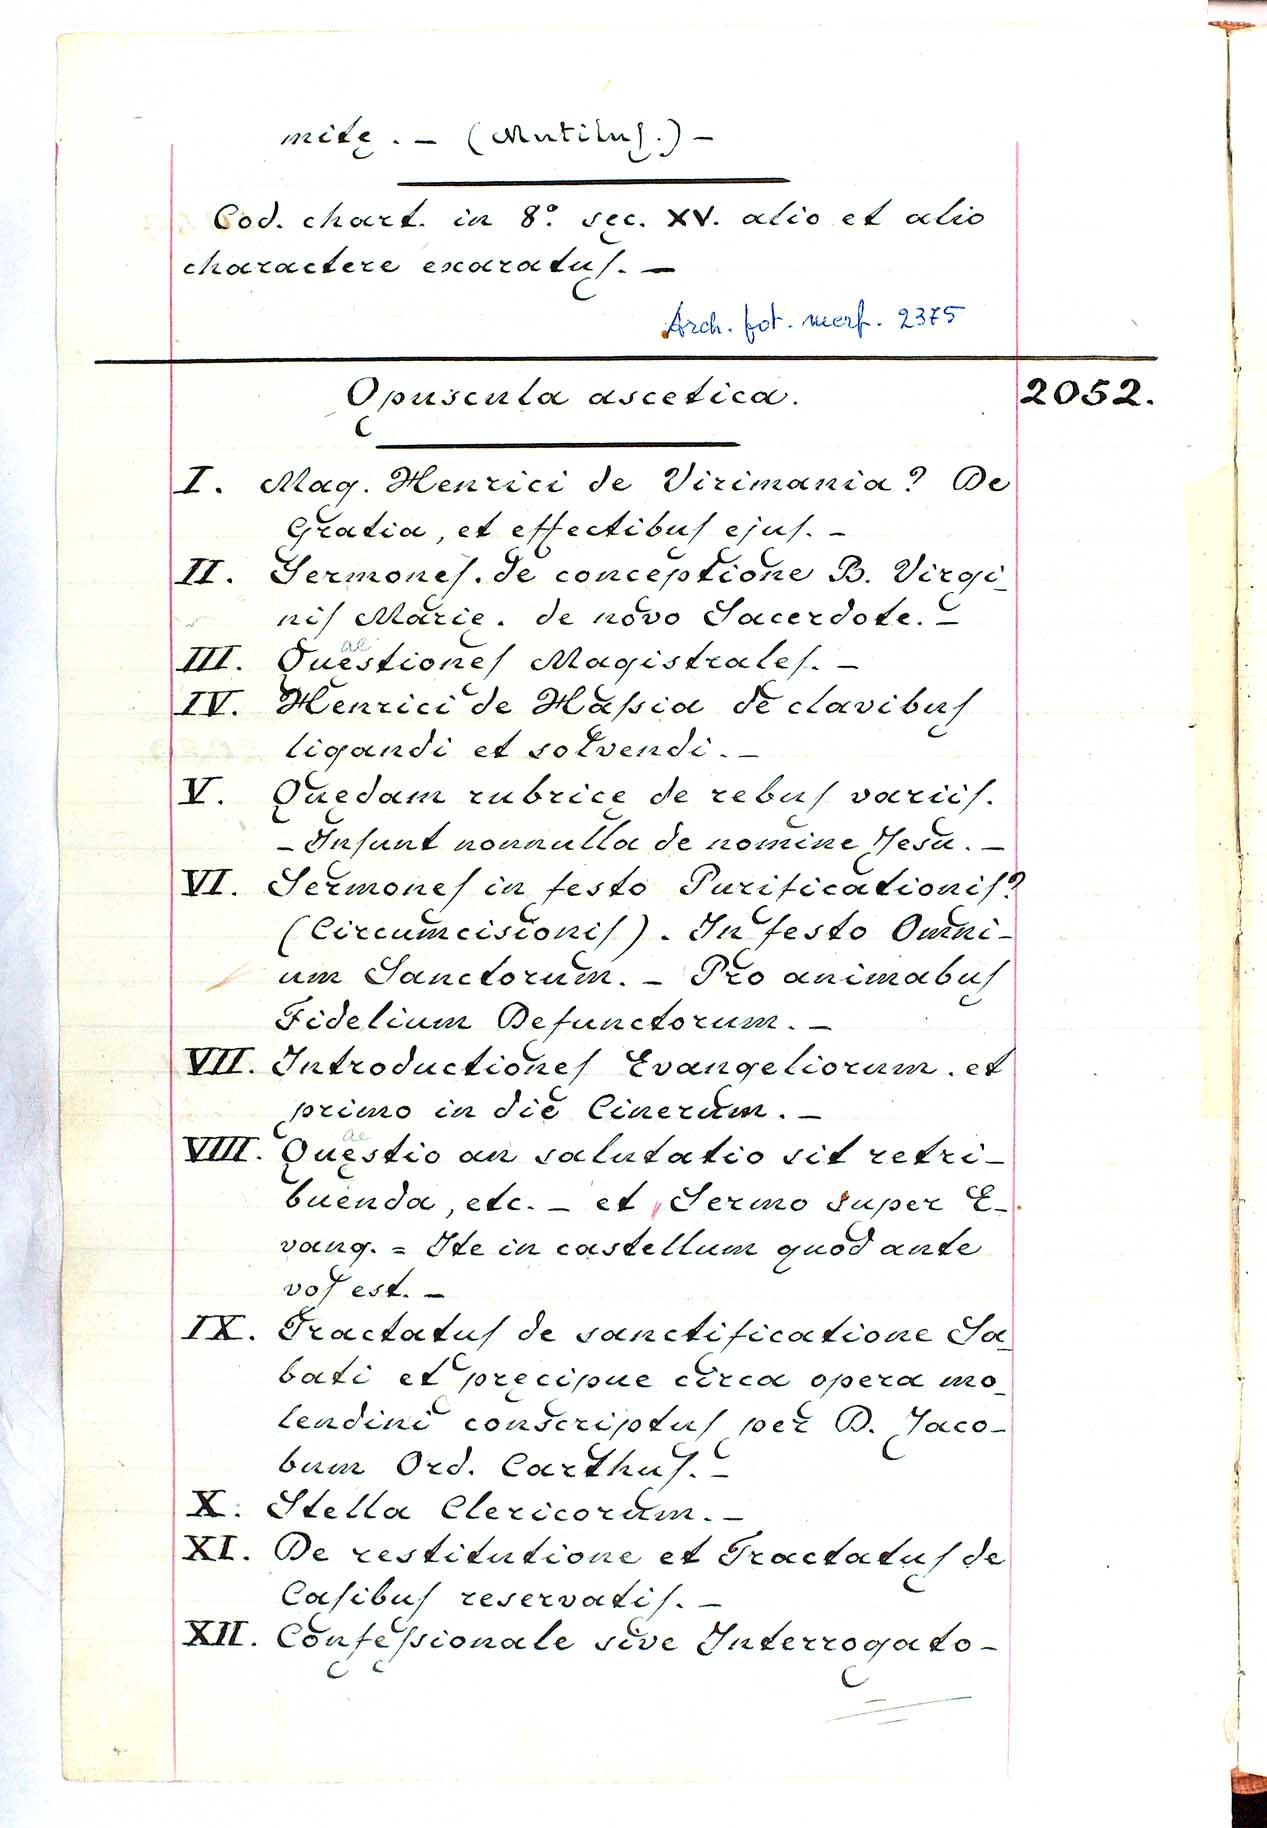 mitę. — (Mutilus.) —
Cod. chart. in 8.° sec. XV. alio et alio
charactere exaratus. —
Arch. fot. 2375
Opuscula ascetica.
2052.
I. Mag. Henrici de Virimania? De
Gratia, et effectibus ejus. —
II. Sermones. de conceptione B. Virgi-
nis Marię. de novo Sacerdote. —
III. Quaestiones Magistrales. —
IV. Henrici de Hassia de clavibus
ligandi et solvendi. —
V. Quędam rubricę de rebus variis.
— Insunt nonnulla de nomine Jesu. —
VI. Sermones in festo Purificationis?
(Circumcisionis). In festo Omni-
um Sanctorum. — Pro animabus
Fidelium Defunctorum. —
VII. Introductiones Evangeliorum. et
primo in die Cinerum. —
VIII. Quęstio an salutatio sit retri-
ae
buenda, etc. — et Sermo super E-
vang. = Ite in castellum quod ante
vos est. —
IX. Tractatus de sanctificatione Sa-
bati et pręcipue circa opera mo-
lendini conscriptus per D. Jaco-
bum Ord. Carthus. —
X. Stella Clericorum. —
XI. De restitutione et Tractatus de
Casibus reservatis. —
XII. Confessionale sive Interrogato-